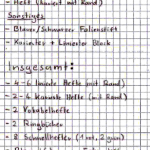 - Heft (kariert mit Rand)
Sonstiges
- Blauer/Schwarzer Folienstift
- Karierter + Linierter Block
Insgesamt:
- 4 - linierte Hefte (mit Rand)
- 2 - 4 karierte Hefte (mit Rand)
- 2 Vokabelhefte
- 2 Ringbücher
- 8 Schnellhefter (1 rot, 2 grün)